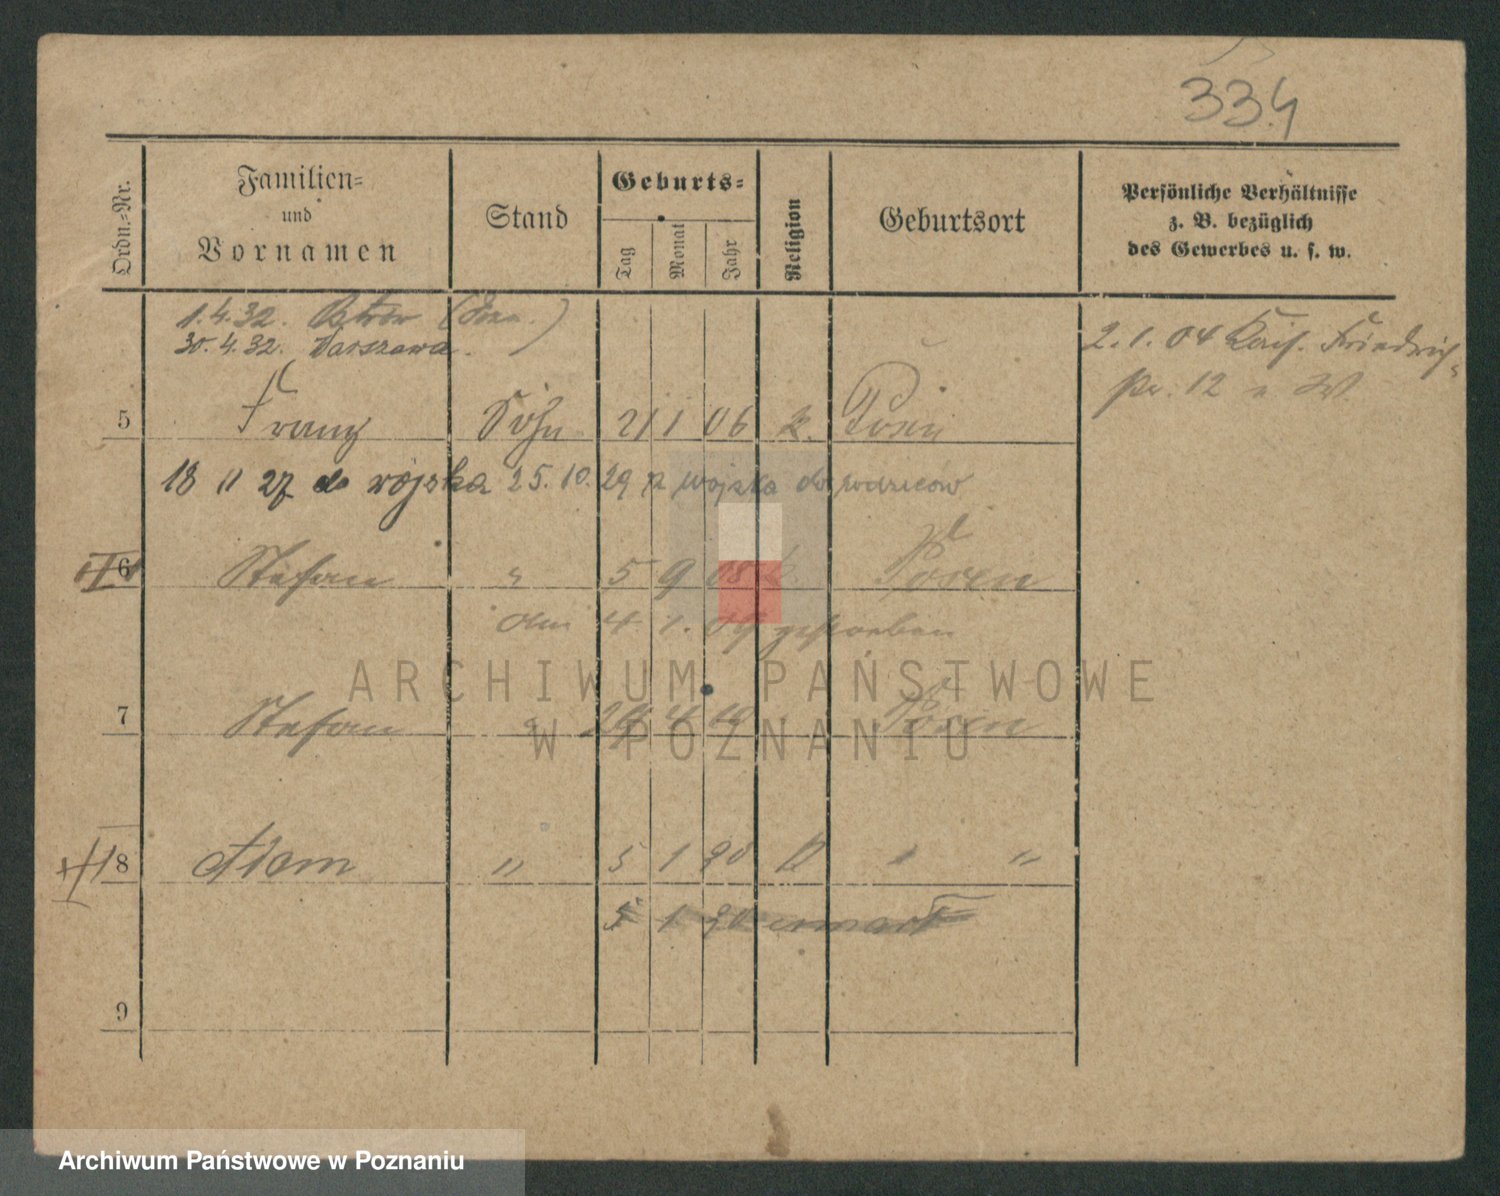 334
Ordn.-Nr.
Familien-
und
Vornamen
Stand
Geburts-
Tag
Monat
Jahr
Religion
Geburtsort
Persönliche Verhältnisse
z. B. bezüglich
des Gewerbes u. s. w.
1.4.32. Ostrów
30.4.32. Warszawa.
2.1.04 Kais. Friedrich-
12
5 Franz Sohn 21 1 06 k. Posen
18 11 27 do wojska 25.10.29 z wojska do rodziców
6 Stefan " 5 9 08 k. Posen
den 4 1. 09 gestorben
7 Stefan " 24 4 10 Posen
8 Adam " 5 1 20 k " "
5 1 20 zmarł
9
ARCHIWUM PAŃSTWOWE
W POZNANIU
Archiwum Państwowe w Poznaniu